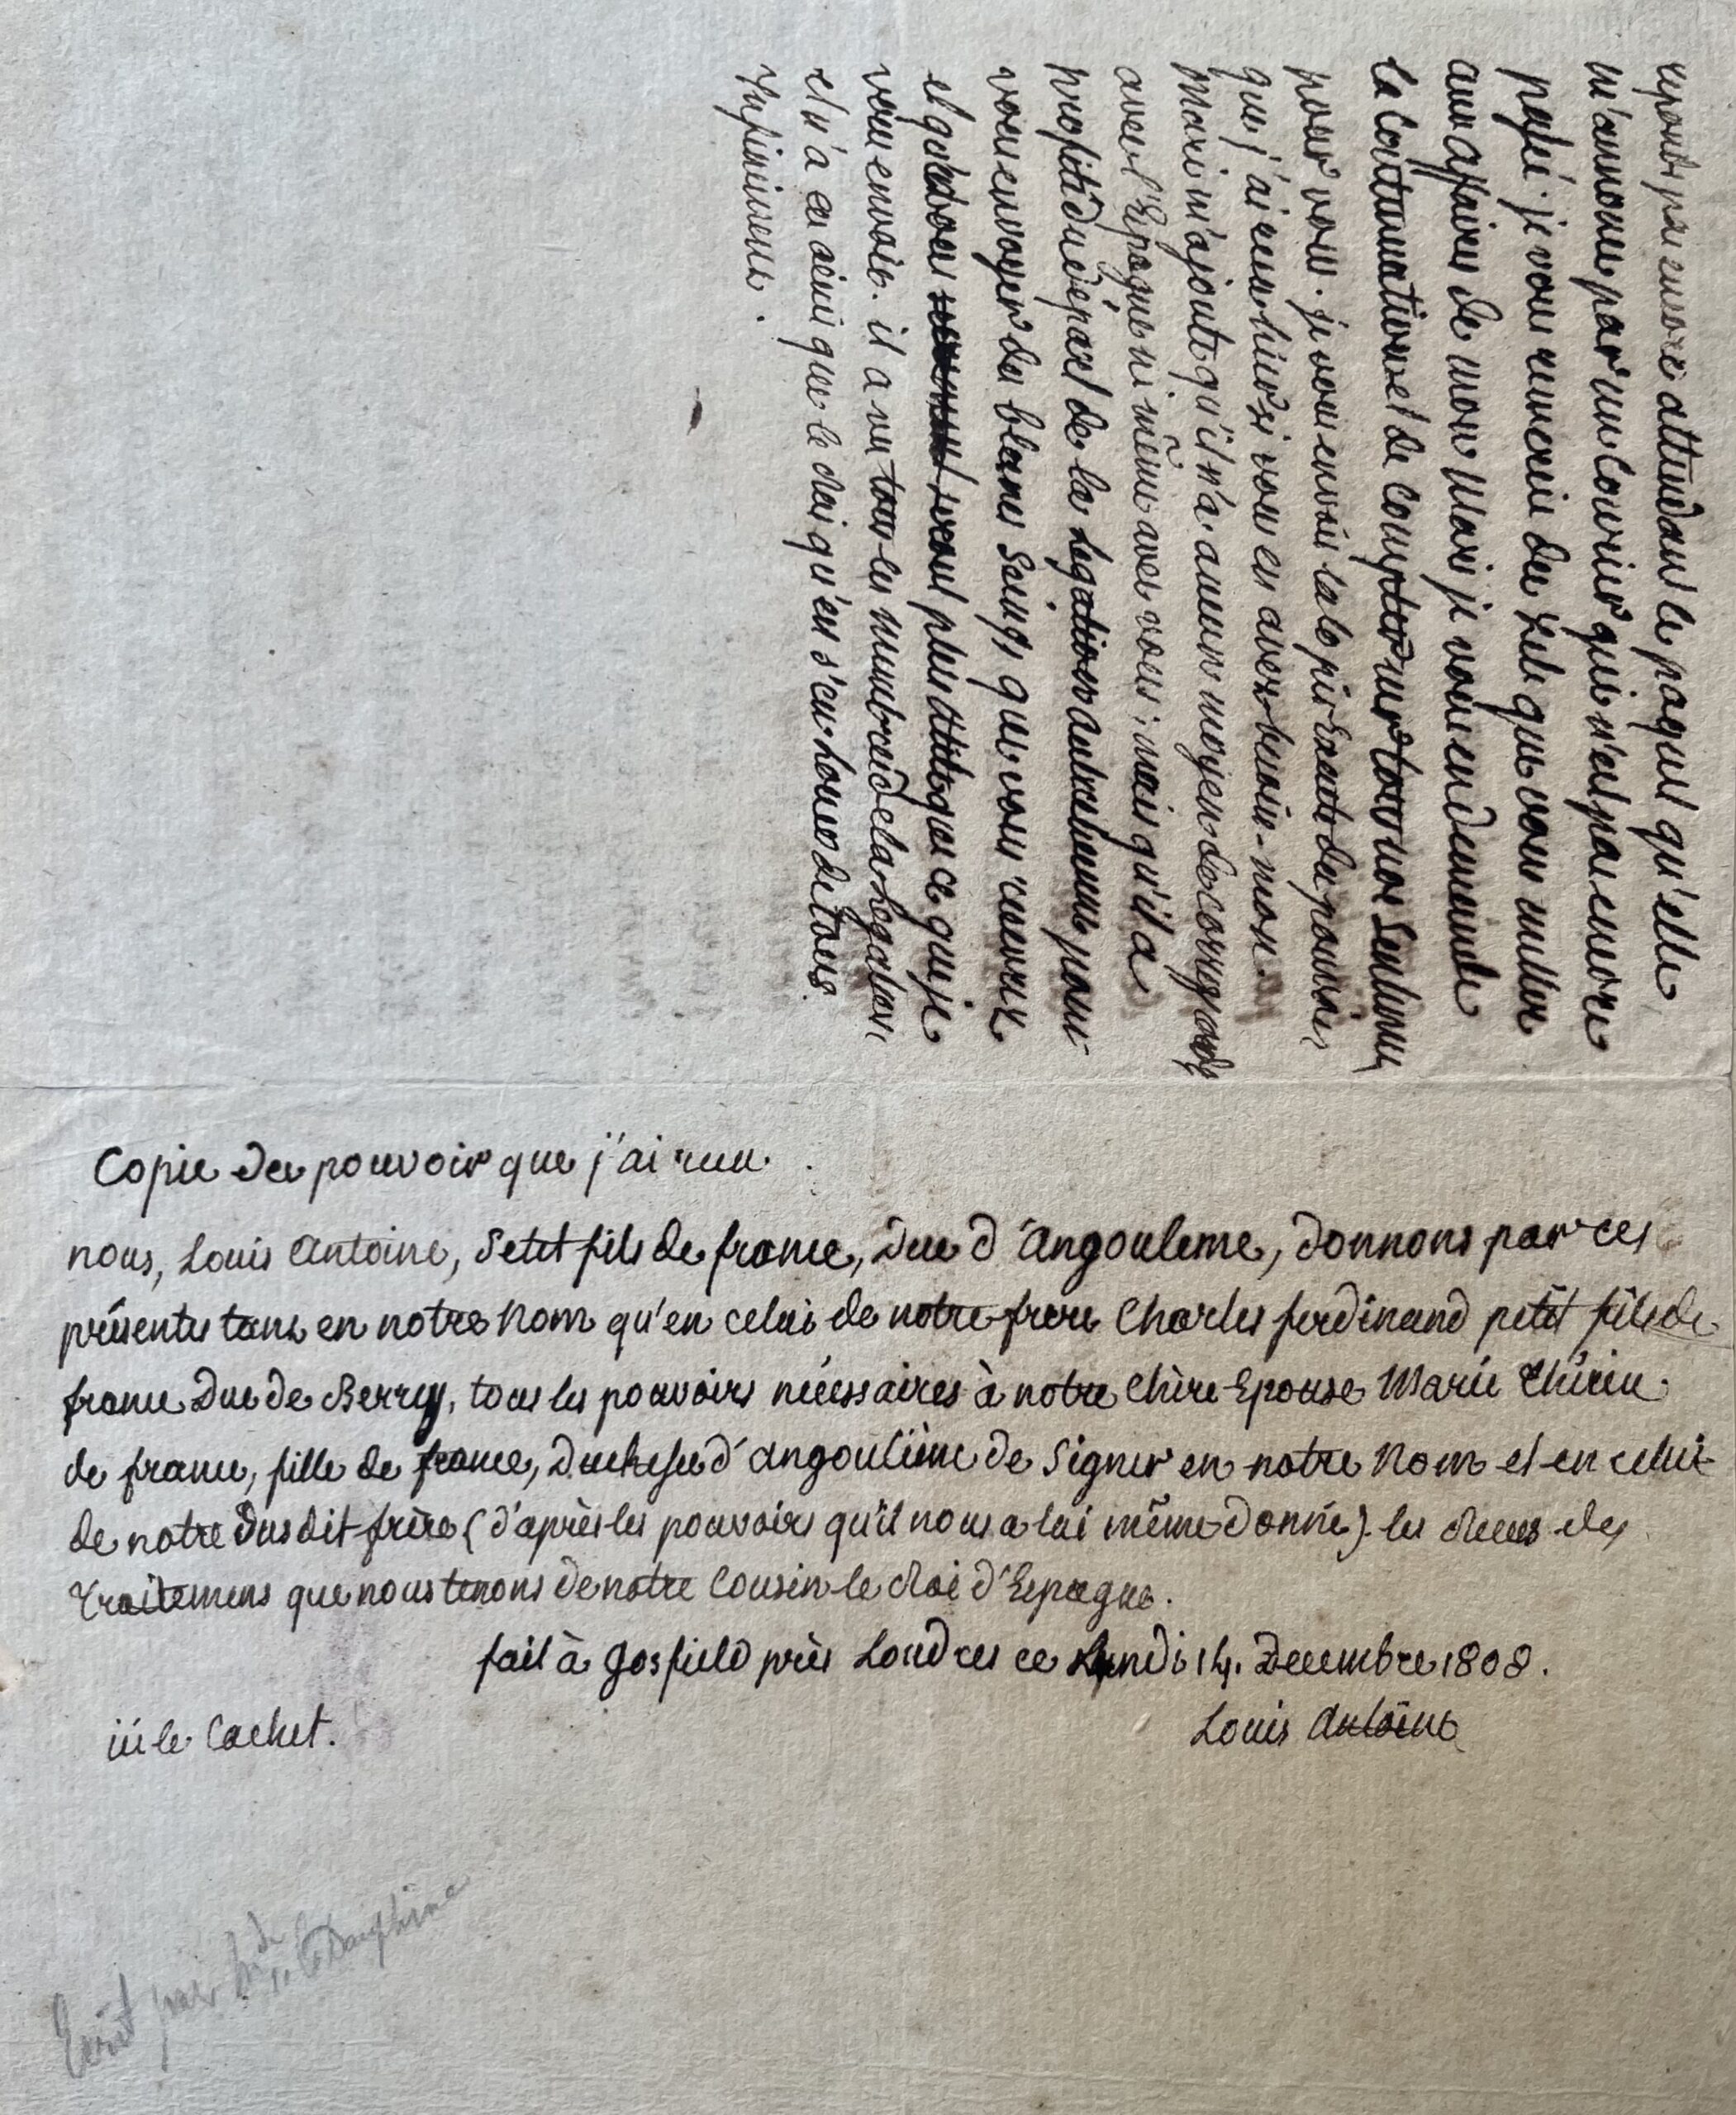 répond pas encore attendant le paquet qu'elle
m'annonce par un Courier qui n'est pas encore
passé. je vous remercie du zele que vous mettez
aux affaires de mon Mari je vous en demande
la Continuation et de compter sur tous nos Sentimens
pour vous. je vous envoie la Copie Exacte du pouvoir
que j'ai reçu hier si vous en avez besoin. mon
Mari m'ajoute qu'il n'a aucun moyen de correspondre
avec l'Espagne ni même avec vous; mais qu'il a
profité du départ de la Legation autrichienne pour
vous envoyer des blancs Seings que vous recevrez
et qui seront plus utiles que ce que je
vous envoie. il a vu tous les membres de la Legation
et n'a eu ainsi que le Roi qu'en s'en. Louer de tous
infiniment.
Copie des pouvoir que j'ai reçu.
nous, Louis Antoine, Petit fils de france, Duc d'Angouleme, donnons par ces
présentes tans en notre Nom qu'en celui de notre frere Charles ferdinand petit fils de
france Duc de Berry, tous les pouvoirs nécessaires à notre Chère Epouse Marie Thérèse
de france, fille de france, Duchesse d'angoulême de Signer en notre Nom et en celui
de notre dusdit frère (d'après les pouvoirs qu'il nous a lui même donné) les recus des
traitemens que nous tenons de notre Cousin le Roi d'Espagne.
fait à Gosfield près Londres ce Lundi 14. Decembre 1808.
ici le Cachet.
Louis Antoine
Ecrit par Mde la Dauphine